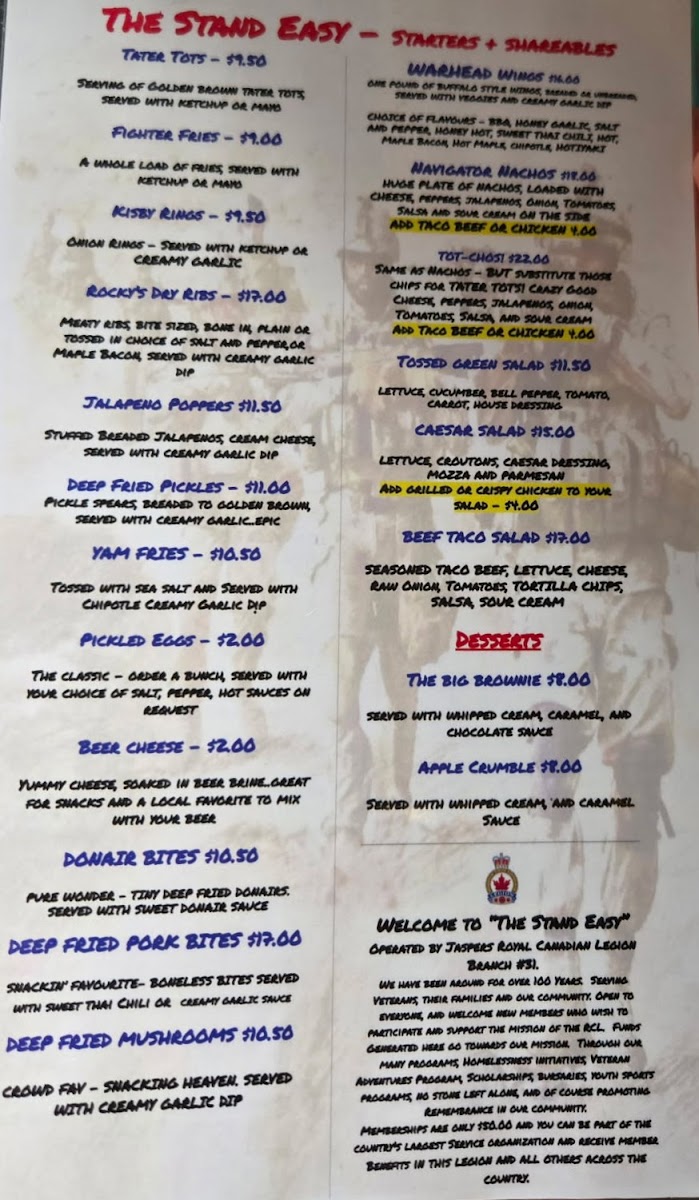 The Stand Easy – Starters + Shareables
Tater Tots – $9.50
Serving of Golden Brown Tater Tots,
served with ketchup or mayo
Fighter Fries – $9.00
A whole load of fries, served with
ketchup or mayo
Kisby Rings – $9.50
Onion Rings – Served with ketchup or
creamy garlic
Rocky's Dry Ribs – $17.00
Meaty ribs, bite sized, bone in, plain or
tossed in choice of salt and pepper, or
Maple Bacon, served with creamy garlic
dip
Jalapeno Poppers $11.50
Stuffed Breaded Jalapenos, cream cheese,
served with creamy garlic dip
Deep Fried Pickles – $11.00
Pickle spears, breaded to golden brown,
served with creamy garlic..epic
Yam Fries – $10.50
Tossed with sea salt and Served with
Chipotle Creamy Garlic Dip
Pickled Eggs – $2.00
The classic – order a bunch, served with
your choice of salt, pepper, hot sauces on
request
Beer cheese – $2.00
Yummy cheese, soaked in beer brine..great
for snacks and a local favorite to mix
with your beer
Donair Bites $10.50
Pure wonder – tiny deep fried donairs.
Served with sweet donair sauce
Deep Fried Pork Bites $17.00
Snackin' favourite– boneless bites served
with sweet Thai Chili or creamy garlic sauce
Deep Fried Mushrooms $10.50
Crowd fav – snacking heaven. Served
with creamy garlic dip
Warhead Wings $16.00
One pound of buffalo style wings, breaded or unbreaded,
served with veggies and creamy garlic dip
Choice of flavours – BBQ, Honey Garlic, Salt
and Pepper, Honey Hot, Sweet Thai Chili, Hot,
Maple Bacon, Hot Maple, Chipotle, Hotiyaki
Navigator Nachos $18.00
Huge plate of nachos, loaded with
cheese, peppers, jalapenos, onion, tomatoes,
Salsa and sour cream on the side
Add taco beef or chicken 4.00
Tot-chos! $22.00
Same as Nachos – BUT substitute those
chips for TATER TOTS! Crazy Good
Cheese, peppers, jalapenos, onion,
Tomatoes, Salsa, and sour cream
Add Taco beef or chicken 4.00
Tossed Green Salad $11.50
Lettuce, cucumber, bell pepper, tomato,
carrot, house dressing
Caesar Salad $15.00
Lettuce, croutons, Caesar dressing,
mozza and parmesan
Add grilled or crispy chicken to your
salad – $4.00
Beef Taco Salad $17.00
Seasoned taco beef, lettuce, cheese,
raw Onion, Tomatoes, tortilla chips,
salsa, sour cream
Desserts
The Big Brownie $8.00
Served with whipped cream, caramel, and
chocolate sauce
Apple Crumble $8.00
Served with whipped cream, and caramel
sauce
Welcome to "The Stand Easy"
Operated by Jaspers Royal Canadian Legion
Branch #31.
We have been around for over 100 Years. Serving
Veterans, their families and our community. Open to
everyone, and welcome new members who wish to
participate and support the mission of the RCL. Funds
generated here go towards our mission. Through our
many programs, Homelessness initiatives, Veteran
Adventures Program, Scholarships, bursaries, youth sports
programs, no stone left alone, and of course promoting
Remembrance in our community.
Memberships are only $50.00 and you can be part of the
country's largest Service organization and receive member
Benefits in this Legion and all others across the
country.